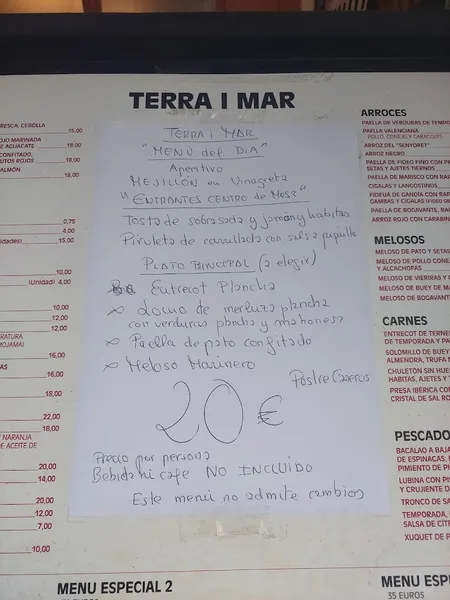 TERRA I MAR
TERRA i MAR
"MENÚ del DIA"
Aperitivo
MEJILLÓN en Vinagreta
"ENTRANTES CENTRO de MESA"
Tosta de sobrasada y jamón y habitas
Piruleta de carrillada con salsa
PLATO PRINCIPAL (a elegir)
Entrecot Plancha
Lomo de merluza plancha
con verduras plancha y mahonesa
Paella de pato confitado
Meloso Marinero
Postre Caseros
20 €
Precio por persona
Bebida ni cafe NO INCLUIDO
Este menú no admite cambios
RESCA, CEBOLLA
15,00
JO MARINADA
E AGUACATE 18,00
CONFITADO,
UTOS ROJOS 18,00
ALMÓN
18,00
0.75
4.00
idades) 15,00
10,00
(Unidad) 4,00
10,00
12,00
12,00
RATURA
MOJAMA)
16,00
AS
16,00
18,00
22,00
18,00
NARANJA
DE ACEITE DE
20,00
14,00
20,00
12,00
7,00
10,00
MENU ESPECIAL 2
ARROCES
PAELLA DE VERDURAS DE TEMPO
PAELLA VALENCIANA
POLLO, CONEJO Y CARACOLES
ARROZ DEL "SENYORET"
ARROZ NEGRO
PAELLA DE FIDEO FINO CON P
SETAS Y AJETES TIERNOS
PAELLA DE MARISCO CON RAP
CIGALAS Y LANGOSTINOS
FIDEUÁ DE GANDÍA CON RAP
GAMBAS Y CIGALAS (FIDEO GR
PAELLA DE BOGAVANTE, RA
ARROZ ROJO CON CARABIN
MELOSOS
MELOSO DE PATO Y SETAS
MELOSO DE POLLO CONE
Y ALCACHOFAS
MELOSO DE VIEIRAS Y
MELOSO DE BUEY DE M
MELOSO DE BOGAVANT
CARNES
ENTRECOT DE TERNE
DE TEMPORADA Y PA
SOLOMILLO DE BUEY
ALMENDRA, TRUFA
CHULETÓN SIN HUE
HABITAS, AJETES Y
PRESA IBÉRICA CON
CRISTAL DE SAL RO
PESCADO
BACALAO A BAJA
DE ESPINACAS,
PIMIENTO DE PI
LUBINA CON PI
Y CRUJIENTE D
TRONCO DE SA
TEMPORADA,
SALSA DE CÍTE
XUQUET DE P
MENU ESP
35 EUROS